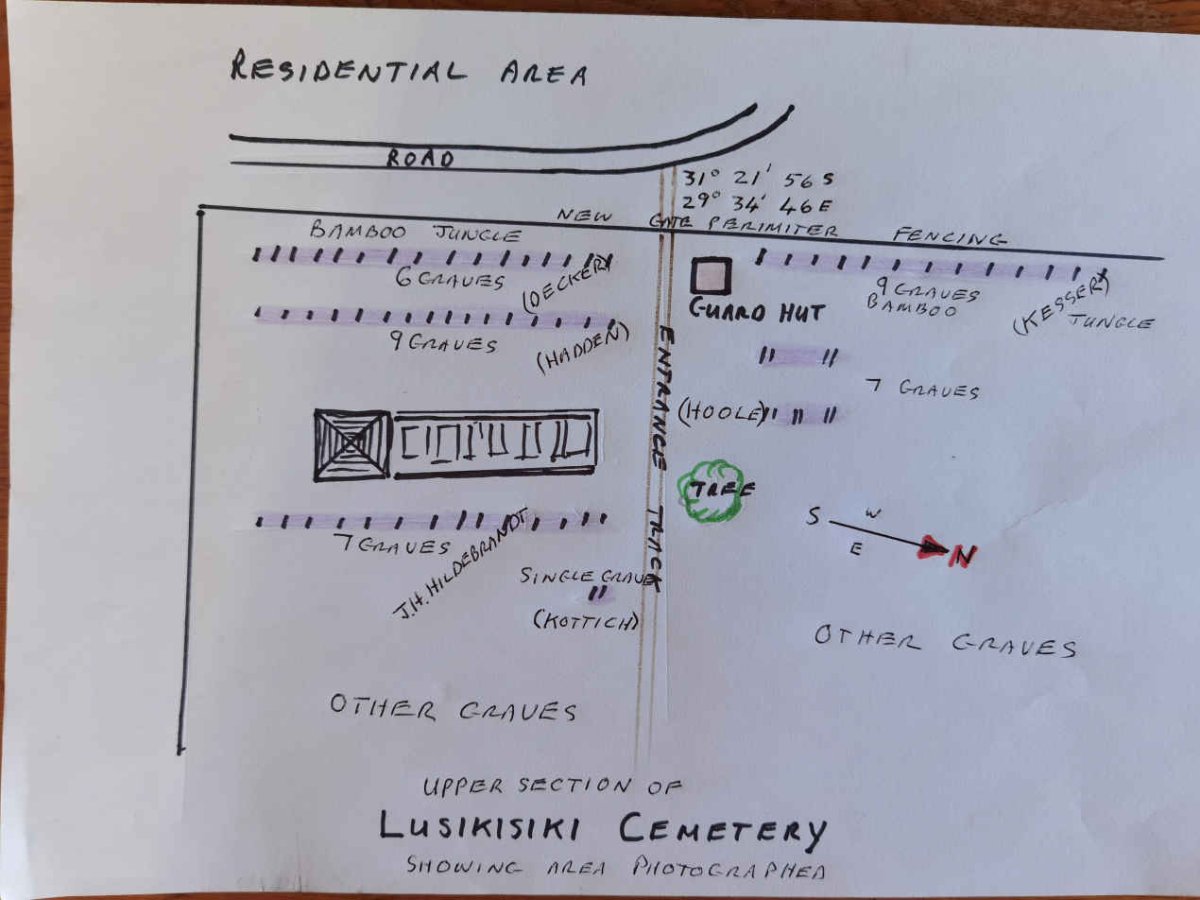 RESIDENTIAL AREA
ROAD
31° 21' 56 S
29° 34' 46 E
NEW GATE PERIMITER FENCING
BAMBOO JUNGLE
6 GRAVES
(DECKER)
9 GRAVES
BAMBOO
JUNGLE
(KESSER)
GUARD HUT
9 GRAVES
(HADDEN)
ENTRANCE TRACK
7 GRAVES
(HOOLE)
TREE
S
W
E
N
7 GRAVES
J.H. HILDEBRANDT
SINGLE GRAVE
(KOTTICH)
OTHER GRAVES
OTHER GRAVES
UPPER SECTION OF
LUSIKISIKI CEMETERY
SHOWING AREA PHOTOGRAPHED